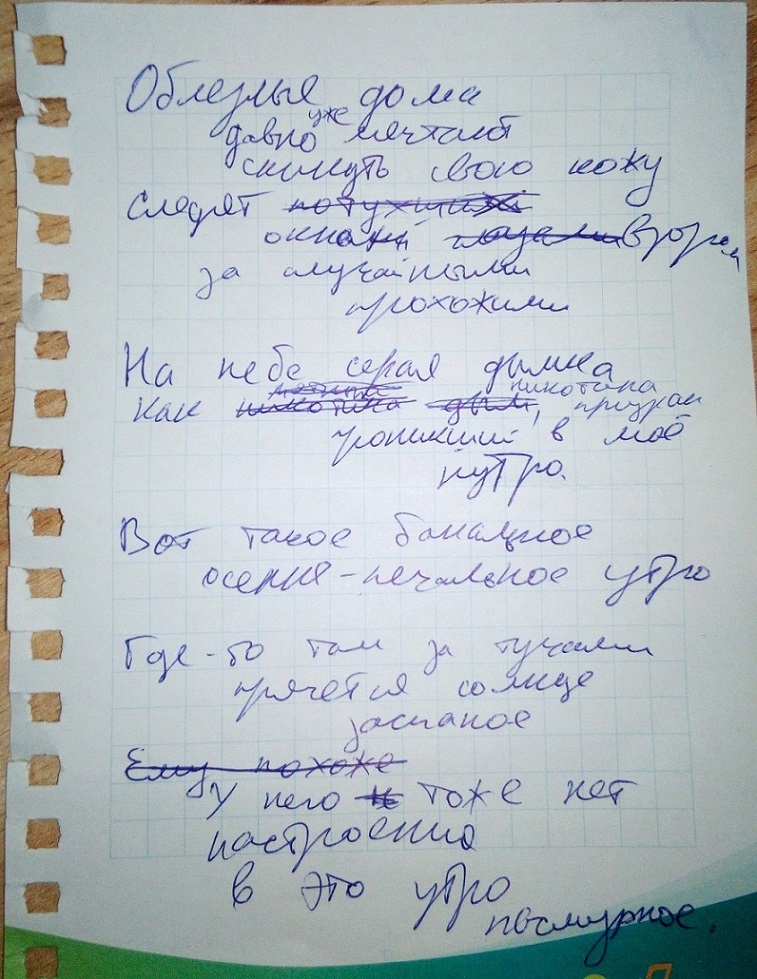 Облезлые дома
давно уже мечтают
скинуть свою кожу
Следят потухшими
окнами глазами взором
за случайными
прохожими
На небе серая дымка
как никотина дым, призрак никотина
проникший в моё
нутро.
Вот такое банальное
осенне-печальное утро
Где-то там за тучами
прячется солнце
заспаное
Ему похоже
У него тоже нет
настроения
в это утро
пасмурное.